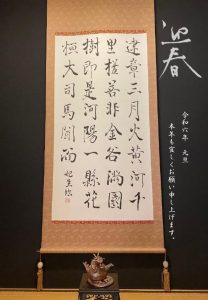 迎春
令和六年 元旦
本年も宜しくお願い申し上げます。
建章三月火黄河千
里槎若非金谷滿園
樹即是河陽一縣花
桓大司馬聞而